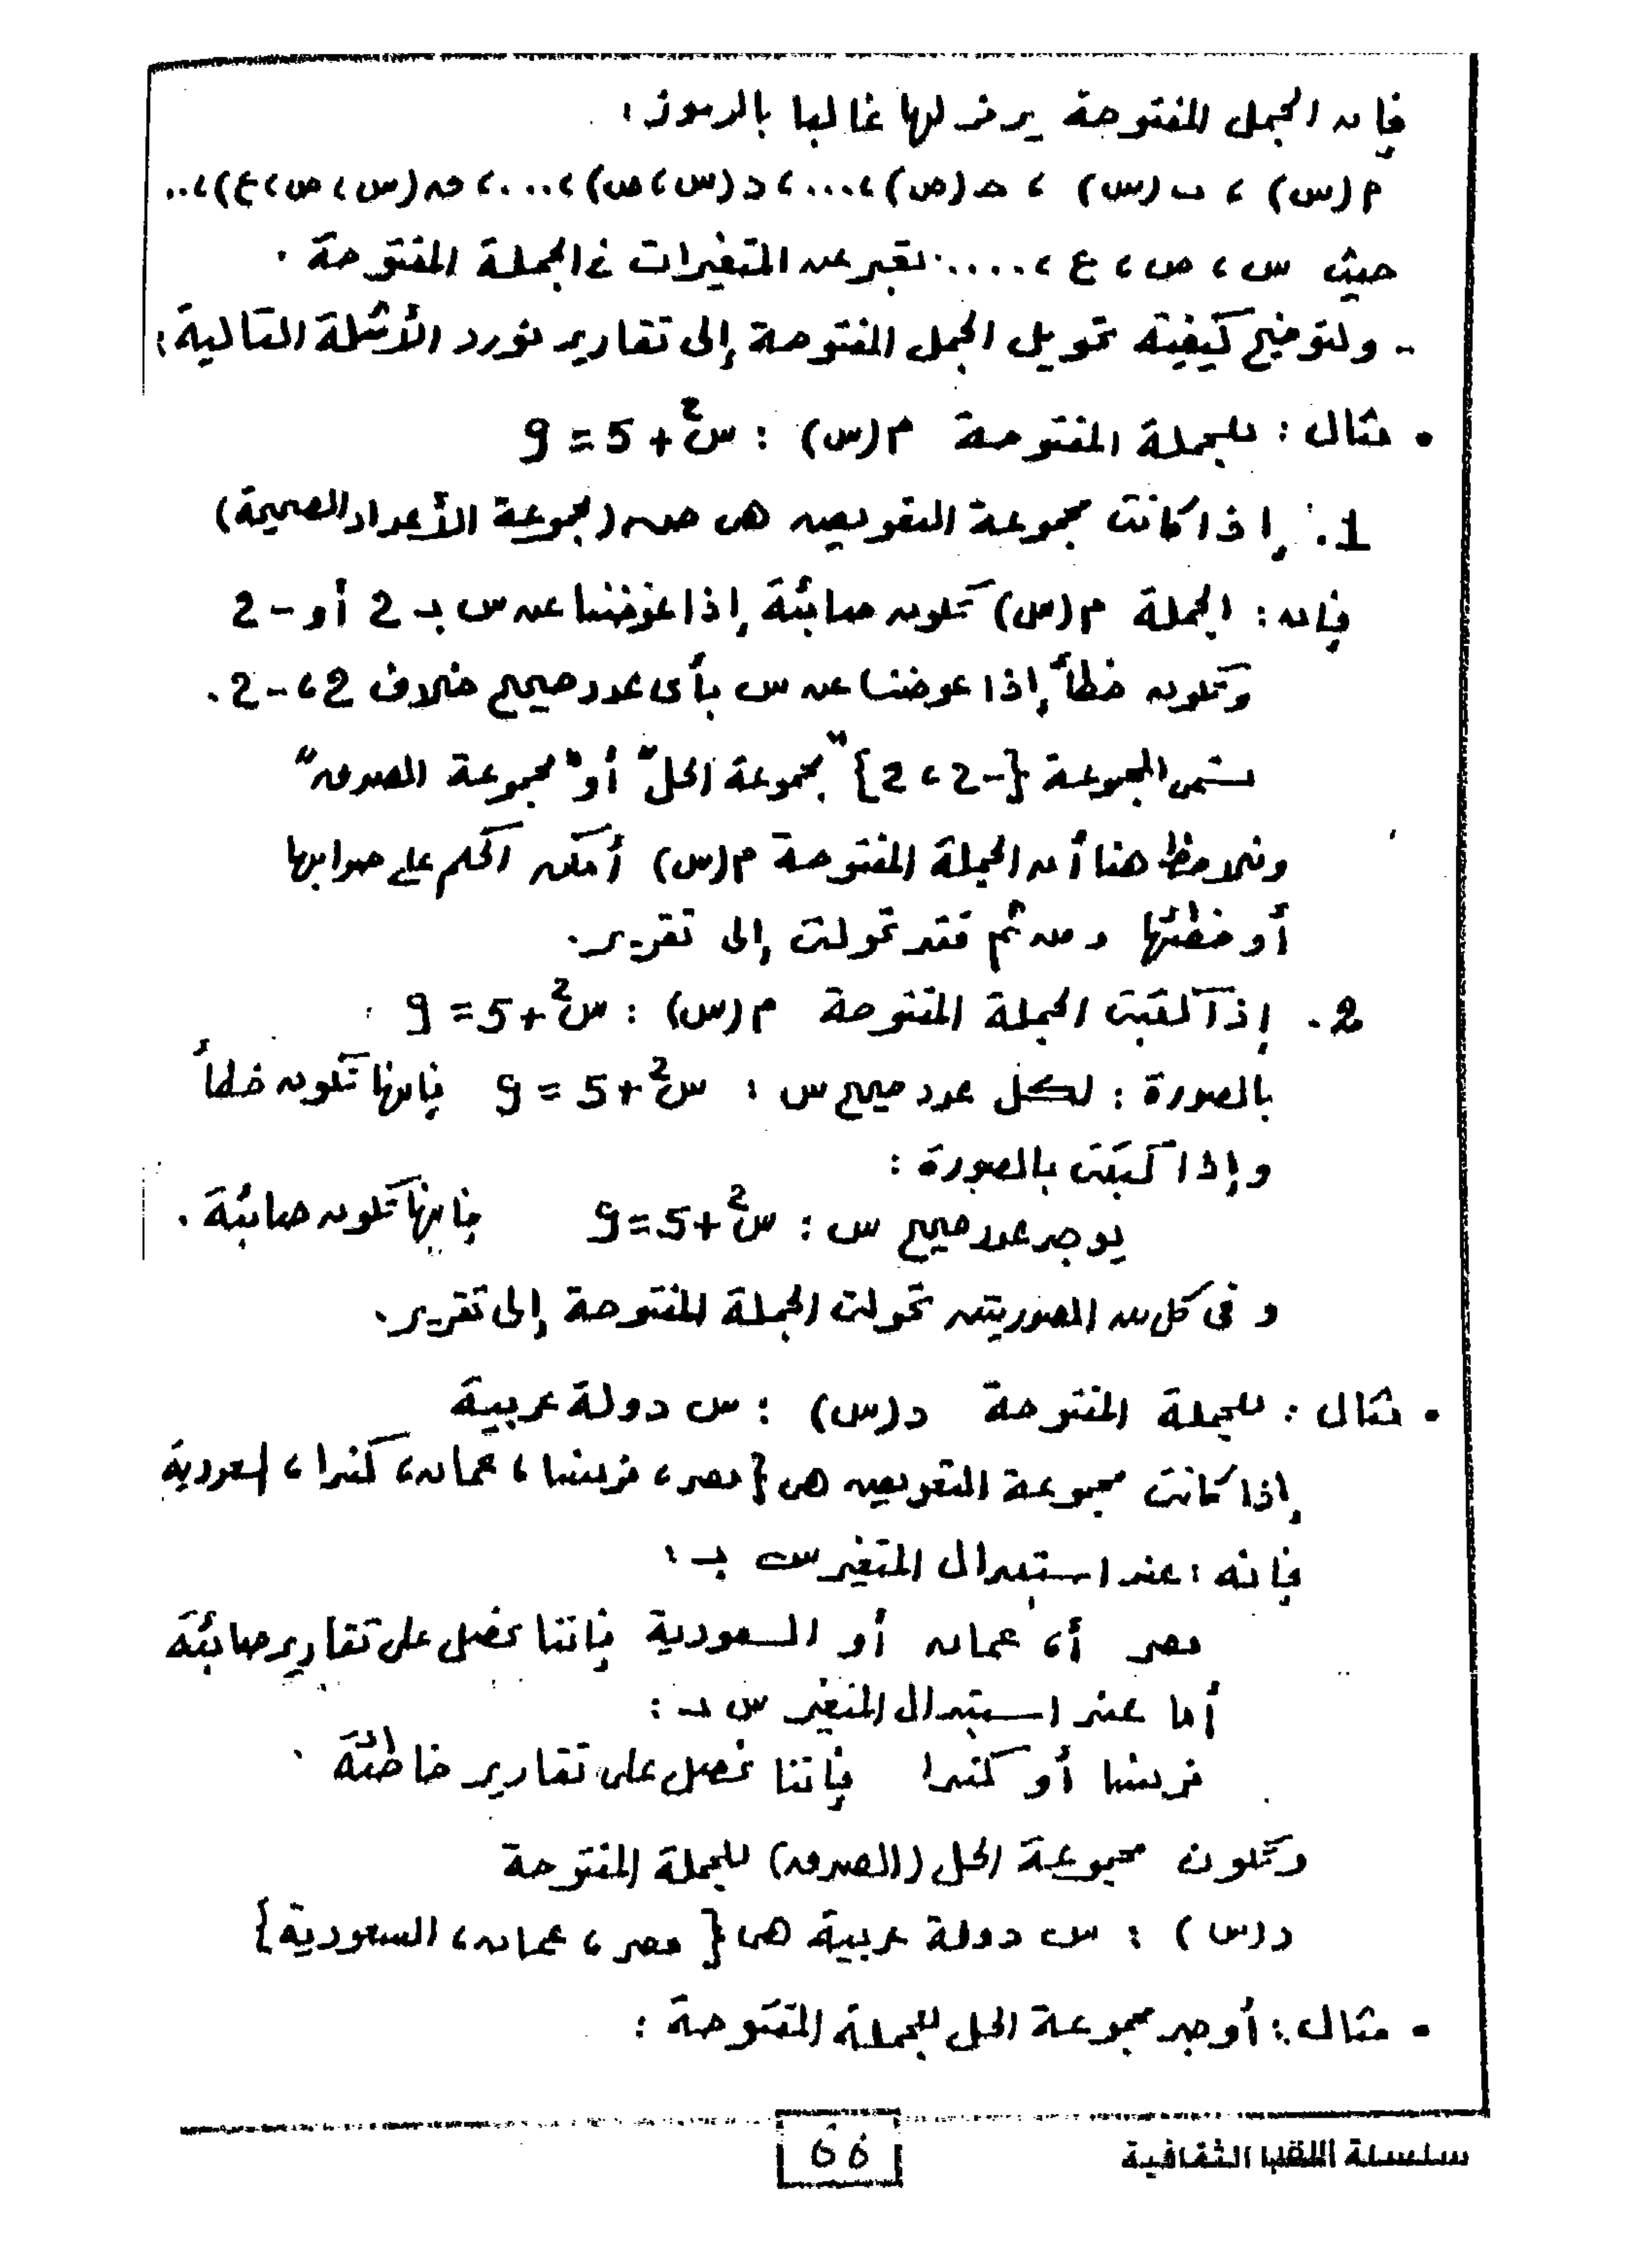 فإن الجمل المفتوحة يرمز لها غالبا بالرموز:
م(س) ، ب(س) ، حـ(ص)،....، د(س،ص)،....، ق(س،ص،ع)،..
حيث س، ص، ع ،..... تعبر عن المتغيرات في الجملة المفتوحة .
- ولتوضيح كيفية تحويل الجمل المفتوحة إلى تقارير نورد الأمثلة التالية:
• مثال : للجملة المفتوحة م(س) : س² + 5 = 9
1. إذا كانت مجموعة التعويض هي صـ (مجموعة الأعداد الصحيحة)
فإن : الجملة م(س) تكون صائبة إذا عوضنا عن س بـ 2 أو -2
وتكون خطأ إذا عوضنا عن س بأي عدد صحيح خلاف 2، -2 .
تسمى المجموعة {-2، 2} "مجموعة الحل" أو "مجموعة الصدق"
ونلاحظ هنا أن الجملة المفتوحة م(س) أمكن الحكم على صوابها
أو خطئها ومن ثم فقد تحولت إلى تقرير.
2. إذا كتبت الجملة المفتوحة م(س) : س² + 5 = 9
بالصورة : لكل عدد صحيح س : س² + 5 = 9 فإنها تكون خطأ
وإذا كتبت بالصورة :
يوجد عدد صحيح س : س² + 5 = 9 فإنها تكون صائبة .
وفي كل من الصورتين تحولت الجملة المفتوحة إلى تقرير.
• مثال : للجملة المفتوحة د(س) : س دولة عربية
إذا كانت مجموعة التعويض هي {مصر ، فرنسا ، عمان ، كندا ، السعودية
فإنه : عند استبدال المتغير س بـ :
مصر أ، عمان أو السعودية فإننا نحصل على تقارير صائبة
أما عند استبدال المتغير س بـ :
فرنسا أو كندا فإننا نحصل على تقارير خاطئة .
وتكون مجموعة الحل (الصدق) للجملة المفتوحة
د(س) : س دولة عربية هي { مصر ، عمان ، السعودية}
• مثال : أوجد مجموعة الحل للجملة المفتوحة :
66
سلسلة اللقيا الثقافية